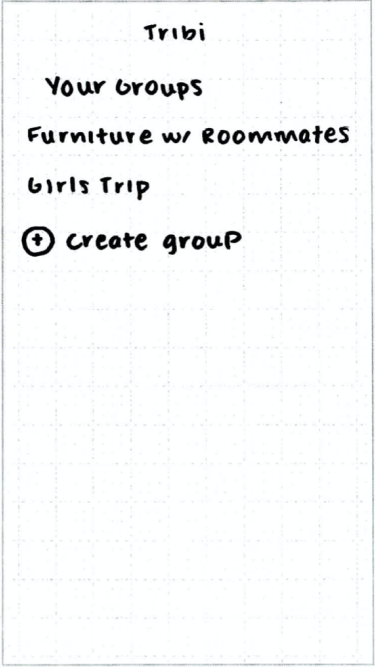 Tribi
Your Groups
Furniture w/ Roommates
Girls Trip
+ Create group